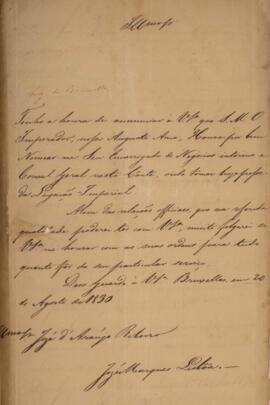 Illmo Sr
Tenho a honra de annunciar a V.Sa que S. M. O
Imperador, nosso Augusto Amo, Houve por bem
Nomear me Seu Encarregado de Negocios interino e
Consul Geral nesta Corte, onde tomei hoje posse
da Legação Imperial.
Alem das relações officiaes, que na referida
qualidade poderei ter com V.Sa, muito folgarei se
V.Sa me honrar com as suas ordens para tudo
quanto for do seu particular serviço.
Deos Guarde a V.Sa Bruxellas, em 20
de Agosto de 1830
Illmo Sr José d'Araujo Ribeiro
José Marques Lisboa.